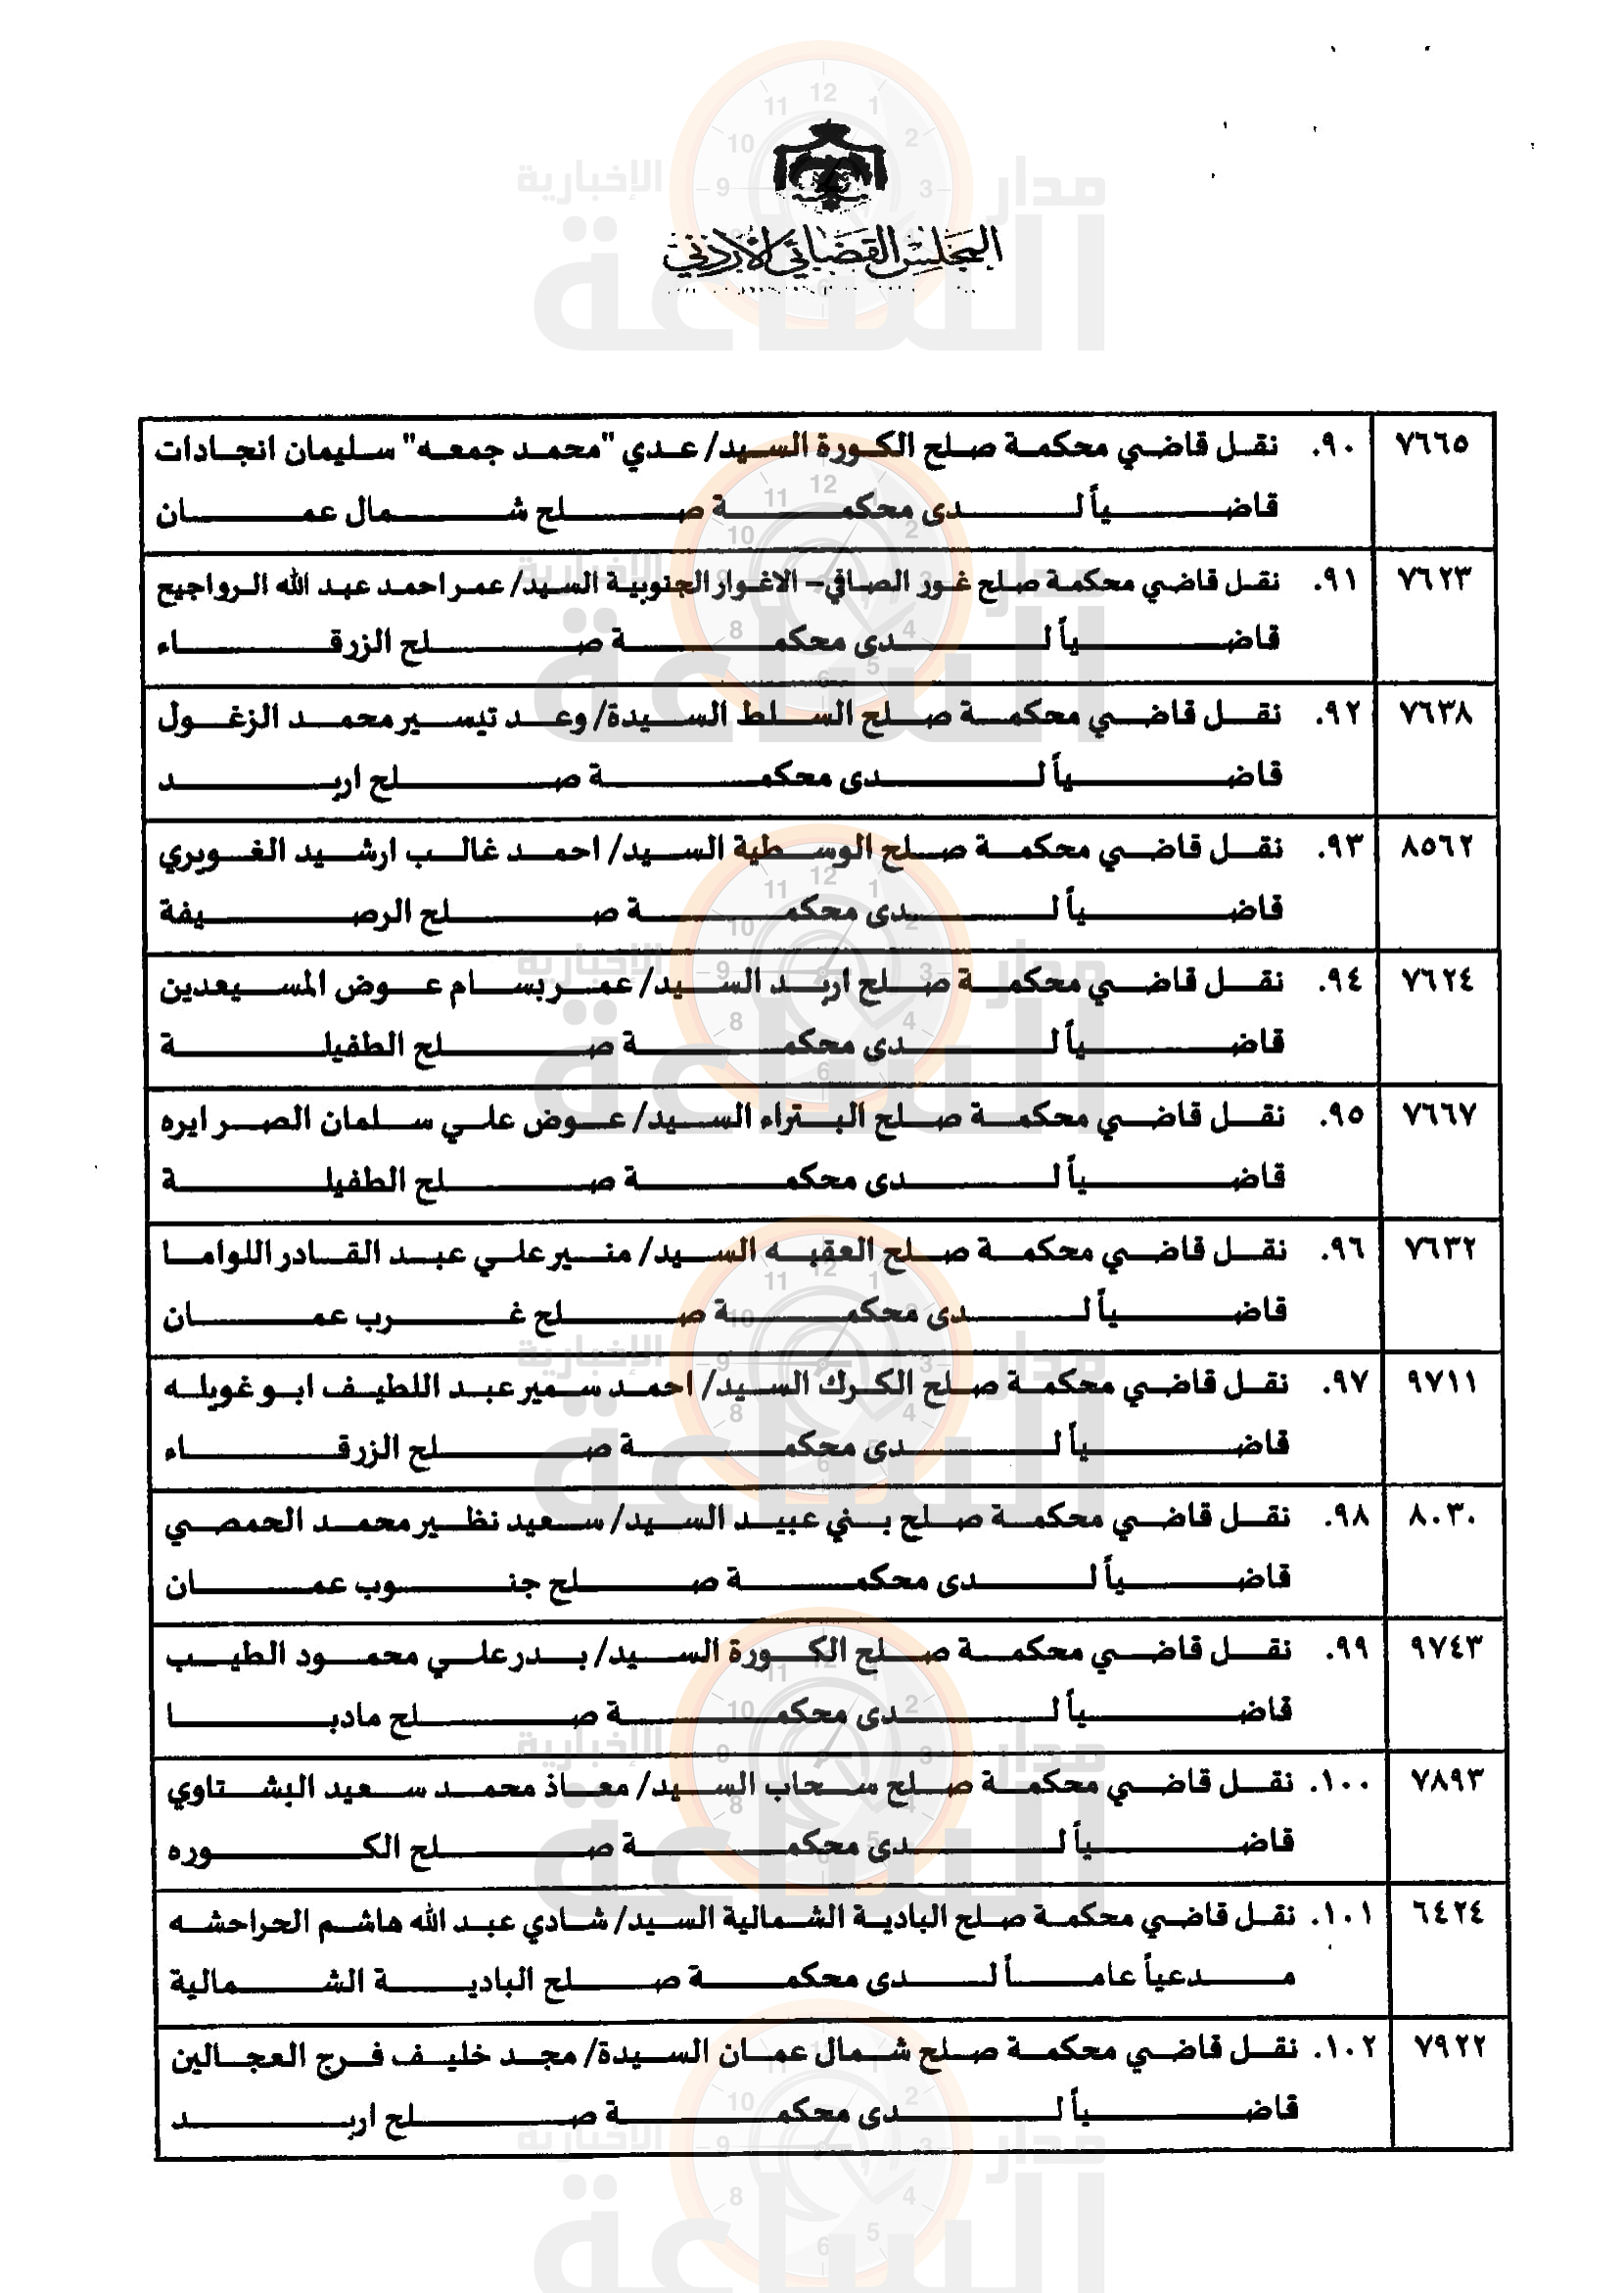 المجلس القضائي الأردني
٧٦٦٥ ٩٠. نقل قاضي محكمة صلح الكورة السيد/ عدي "محمد جمعه" سليمان انجادات
قاضياً لدى محكمة صلح شمال عمان
٧٦٢٣ ٩١. نقل قاضي محكمة صلح غور الصافي – الاغوار الجنوبية السيد/ عمر احمد عبد الله الرواجيح
قاضياً لدى محكمة صلح الزرقاء
٧٦٣٨ ٩٢. نقل قاضي محكمة صلح السلط السيدة/ وعد تيسير محمد الزغول
قاضياً لدى محكمة صلح اربد
٨٥٦٢ ٩٣. نقل قاضي محكمة صلح الوسطية السيد/ احمد غالب ارشيد الغويري
قاضياً لدى محكمة صلح الرصيفة
٧٦٢٤ ٩٤. نقل قاضي محكمة صلح اربد السيد/ عمر بسام عوض المسيعدين
قاضياً لدى محكمة صلح الطفيلة
٧٦٦٧ ٩٥. نقل قاضي محكمة صلح البتراء السيد/ عوض علي سلمان الصرايره
قاضياً لدى محكمة صلح الطفيلة
٧٦٣٢ ٩٦. نقل قاضي محكمة صلح العقبه السيد/ منير علي عبد القادر اللواما
قاضياً لدى محكمة صلح غرب عمان
٩٧١١ ٩٧. نقل قاضي محكمة صلح الكرك السيد/ احمد سمير عبد اللطيف ابو غويله
قاضياً لدى محكمة صلح الزرقاء
٨٠٣٠ ٩٨. نقل قاضي محكمة صلح بني عبيد السيد/ سعيد نظير محمد الحمصي
قاضياً لدى محكمة صلح جنوب عمان
٩٧٤٣ ٩٩. نقل قاضي محكمة صلح الكورة السيد/ بدر علي محمود الطيب
قاضياً لدى محكمة صلح مادبا
٧٨٩٣ ١٠٠. نقل قاضي محكمة صلح سحاب السيد/ معاذ محمد سعيد البشتاوي
قاضياً لدى محكمة صلح الكوره
٦٤٢٤ ١٠١. نقل قاضي محكمة صلح البادية الشمالية السيد/ شادي عبد الله هاشم الحراحشه
مدعياً عاماً لدى محكمة صلح البادية الشمالية
٧٩٢٢ ١٠٢. نقل قاضي محكمة صلح شمال عمان السيدة/ مجد خليف فرج العجالين
قاضياً لدى محكمة صلح اربد
مدار الساعة الإخبارية